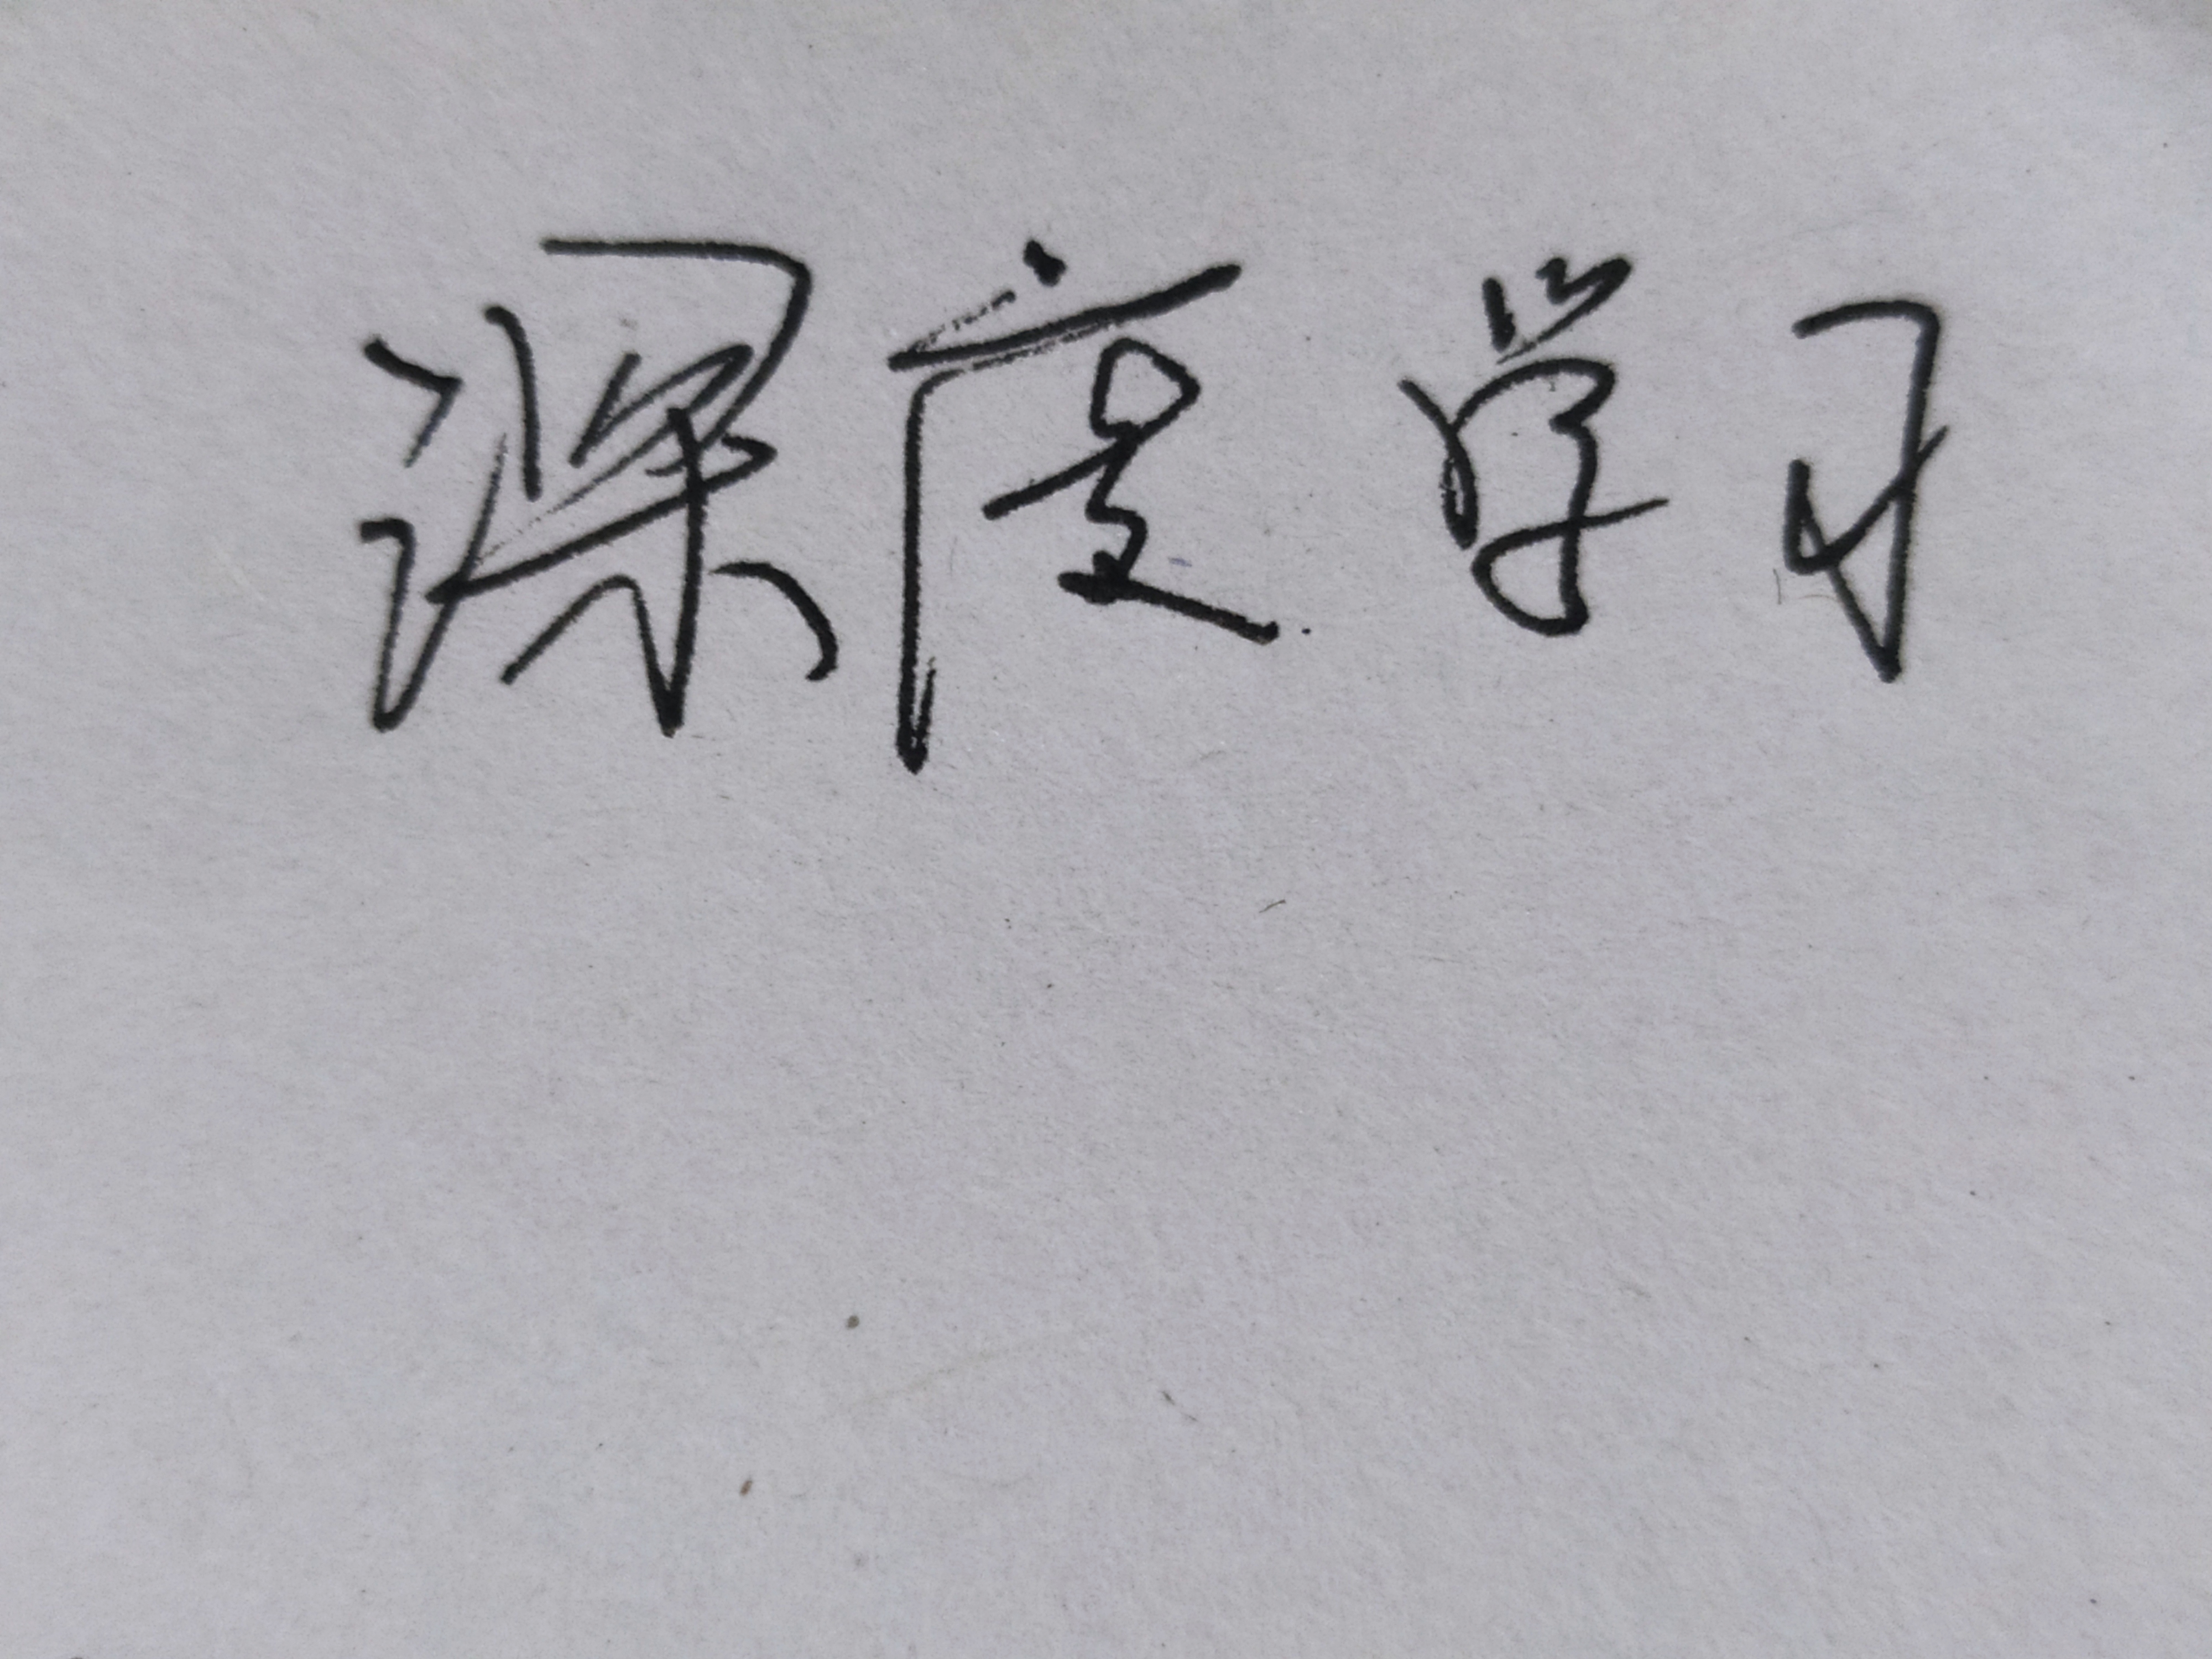 深度学习